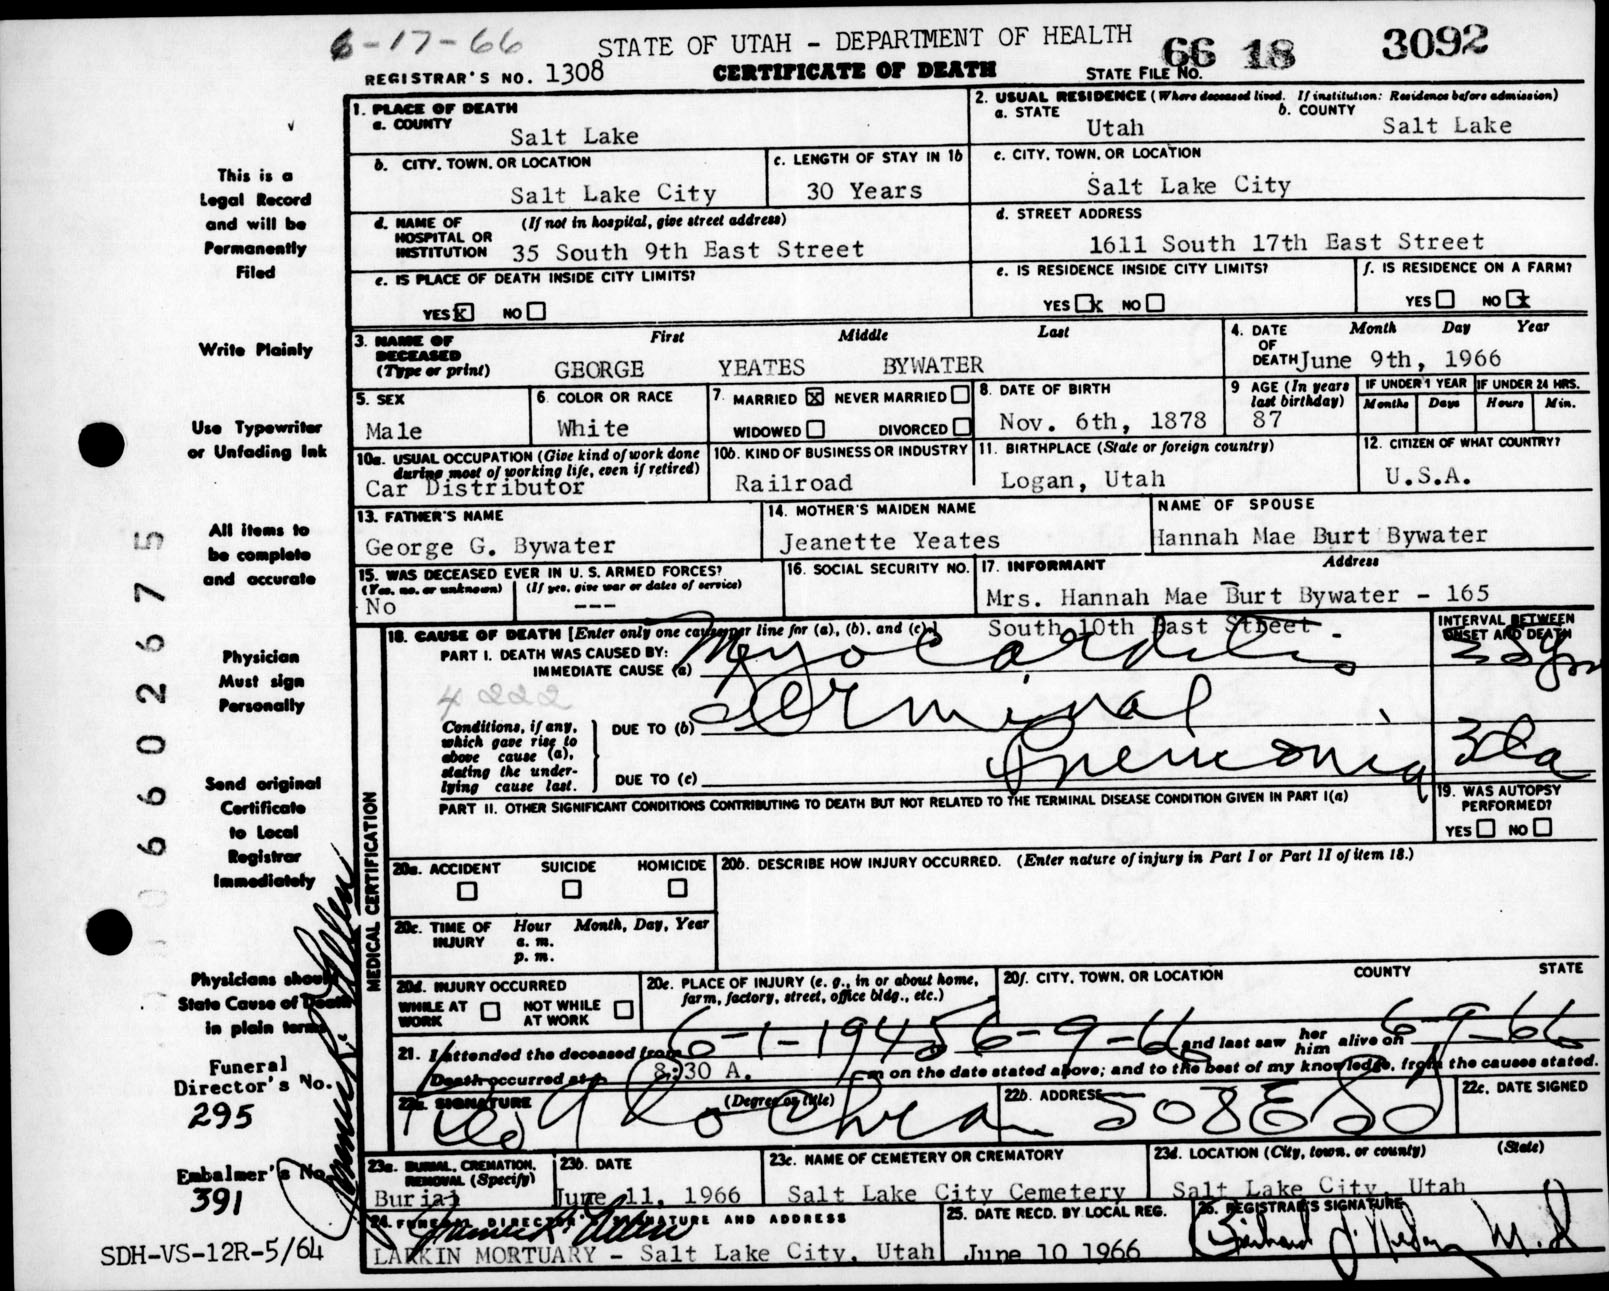 6-17-66
STATE OF UTAH - DEPARTMENT OF HEALTH
66 18 3092
REGISTRAR'S NO. 1308
CERTIFICATE OF DEATH
STATE FILE NO.
This is a
Legal Record
and will be
Permanently
Filed
Write Plainly
Use Typewriter
or Unfading Ink
All items to
be complete
and accurate
Physician
Must sign
Personally
Send original
Certificate
to Local
Registrar
Immediately
Physicians should
State Cause of Death
in plain terms
Funeral
Director's No.
295
Embalmer's No.
391
SDH-VS-12R-5/64
66026775
1. PLACE OF DEATH
a. COUNTY
Salt Lake
2. USUAL RESIDENCE (Where deceased lived. If institution: Residence before admission)
a. STATE
Utah
b. COUNTY
Salt Lake
b. CITY, TOWN, OR LOCATION
Salt Lake City
c. LENGTH OF STAY IN 1b
30 Years
c. CITY, TOWN, OR LOCATION
Salt Lake City
d. NAME OF HOSPITAL OR INSTITUTION
(If not in hospital, give street address)
35 South 9th East Street
d. STREET ADDRESS
1611 South 17th East Street
e. IS PLACE OF DEATH INSIDE CITY LIMITS?
YES X NO
e. IS RESIDENCE INSIDE CITY LIMITS?
YES X NO
f. IS RESIDENCE ON A FARM?
YES NO X
3. NAME OF DECEASED
(Type or print)
First Middle Last
GEORGE YEATES BYWATER
4. DATE OF DEATH
Month Day Year
June 9th, 1966
5. SEX
Male
6. COLOR OR RACE
White
7. MARRIED X NEVER MARRIED
WIDOWED DIVORCED
8. DATE OF BIRTH
Nov. 6th, 1878
9 AGE (In years last birthday)
87
IF UNDER 1 YEAR
Months Days
IF UNDER 24 HRS.
Hours Min.
10a. USUAL OCCUPATION (Give kind of work done
during most of working life, even if retired)
Car Distributor
10b. KIND OF BUSINESS OR INDUSTRY
Railroad
11. BIRTHPLACE (State or foreign country)
Logan, Utah
12. CITIZEN OF WHAT COUNTRY?
U.S.A.
13. FATHER'S NAME
George G. Bywater
14. MOTHER'S MAIDEN NAME
Jeanette Yeates
NAME OF SPOUSE
Hannah Mae Burt Bywater
15. WAS DECEASED EVER IN U. S. ARMED FORCES?
(Yes, no, or unknown) (If yes, give war or dates of service)
No ---
16. SOCIAL SECURITY NO.
17. INFORMANT Address
Mrs. Hannah Mae Burt Bywater - 165
South 10th East Street.
MEDICAL CERTIFICATION
18. CAUSE OF DEATH [Enter only one cause per line for (a), (b), and (c).]
PART I. DEATH WAS CAUSED BY:
IMMEDIATE CAUSE (a) Myocarditis
INTERVAL BETWEEN
ONSET AND DEATH
4 222
Conditions, if any,
which gave rise to
above cause (a),
stating the under-
lying cause last.
DUE TO (b) Terminal
DUE TO (c) Pneumonia
3 da
PART II. OTHER SIGNIFICANT CONDITIONS CONTRIBUTING TO DEATH BUT NOT RELATED TO THE TERMINAL DISEASE CONDITION GIVEN IN PART I(a)
19. WAS AUTOPSY
PERFORMED?
YES NO
20a. ACCIDENT SUICIDE HOMICIDE
20b. DESCRIBE HOW INJURY OCCURRED. (Enter nature of injury in Part I or Part II of item 18.)
20c. TIME OF INJURY
Hour Month, Day, Year
a. m.
p. m.
20d. INJURY OCCURRED
WHILE AT WORK NOT WHILE AT WORK
20e. PLACE OF INJURY (e. g., in or about home,
farm, factory, street, office bldg., etc.)
20f. CITY, TOWN, OR LOCATION COUNTY STATE
21. I attended the deceased from 6-1-1945 6-9-66 and last saw her him alive on 6-9-66
Death occurred at 8:30 A. m on the date stated above; and to the best of my knowledge, from the causes stated.
22a. SIGNATURE (Degree or title)
22b. ADDRESS
508 E
22c. DATE SIGNED
23a. BURIAL, CREMATION,
REMOVAL (Specify)
Burial
23b. DATE
June 11, 1966
23c. NAME OF CEMETERY OR CREMATORY
Salt Lake City Cemetery
23d. LOCATION (City, town, or county) (State)
Salt Lake City, Utah
24. FUNERAL DIRECTOR'S SIGNATURE AND ADDRESS
LARKIN MORTUARY - Salt Lake City, Utah
25. DATE RECD. BY LOCAL REG.
June 10 1966
26. REGISTRAR'S SIGNATURE